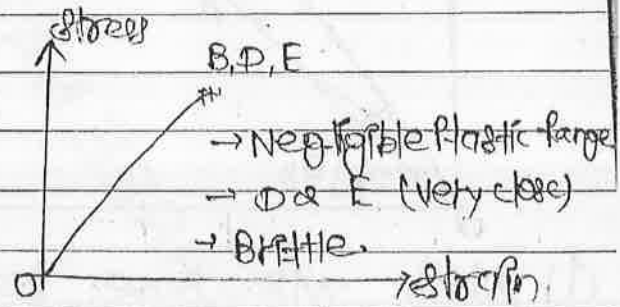 Stress
B, D, E
→ Negligible Plastic Range
→ D & E (very close)
→ Brittle.
O
→ Strain